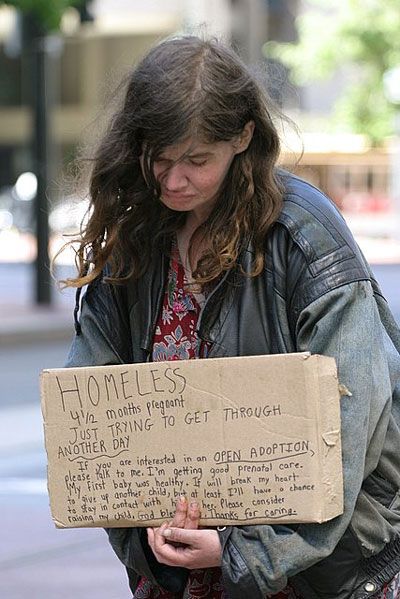 HOMELESS
4 1/2 months pregnant
JUST TRYING TO GET THROUGH
ANOTHER DAY
If you are interested in an OPEN ADOPTION,
please talk to me. I'm getting good prenatal care.
My first baby was healthy. It will break my heart
to give up another child, but at least I'll have a chance
to stay in contact with her. Please consider
raising my child. God bless Thanks for caring.